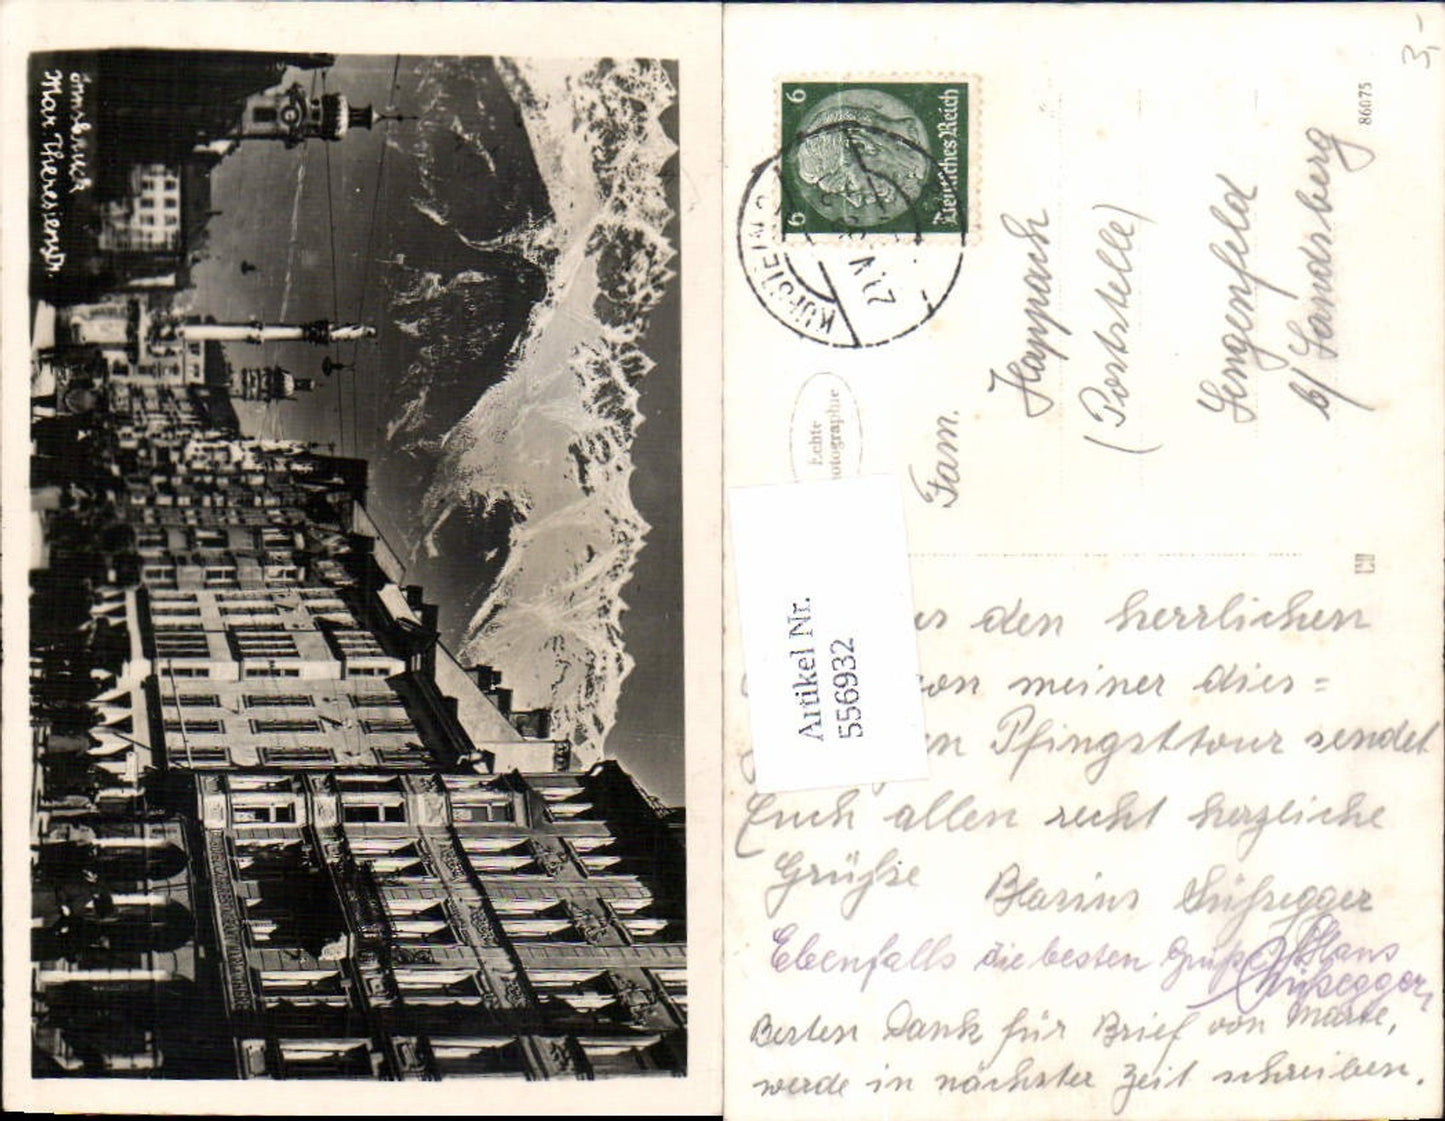 Innsbruck
Max Theresienstr.
3,-
86075
Deutsches Reich
6
6
KUFSTEIN
21.V.
Echte
Photographie
Fam.
Happach
(Poststelle)
Lengenfeld
b/ Landsberg
Artikel Nr.
556932
den herrlichen
von meiner dies=
Pfingsttour sendet
Euch allen recht herzliche
Grüße
Ebenfalls die besten Grüße Hans
Besten Dank für Brief von
werde in nächster Zeit schreiben.